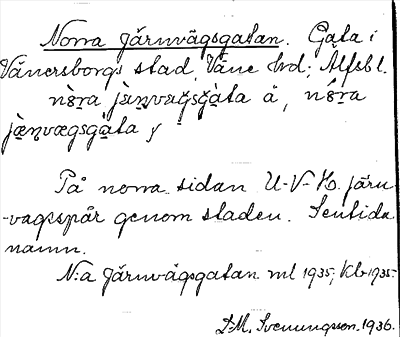 Norra Järnvägsgatan. Gata i
Vänersborgs stad, Väne hrd; Älfsbl.
nò̤ra jæ̀ṇvægsgàta å, nó̤ra
jæ̀ṇvægsgàta y
På norra sidan U-V-H. järn
-vagsspår genom staden. Sentida
namn.
N:a Järnvägsgatan ml 1935; Kb 1935-
D-M. Svenungsson. 1936.